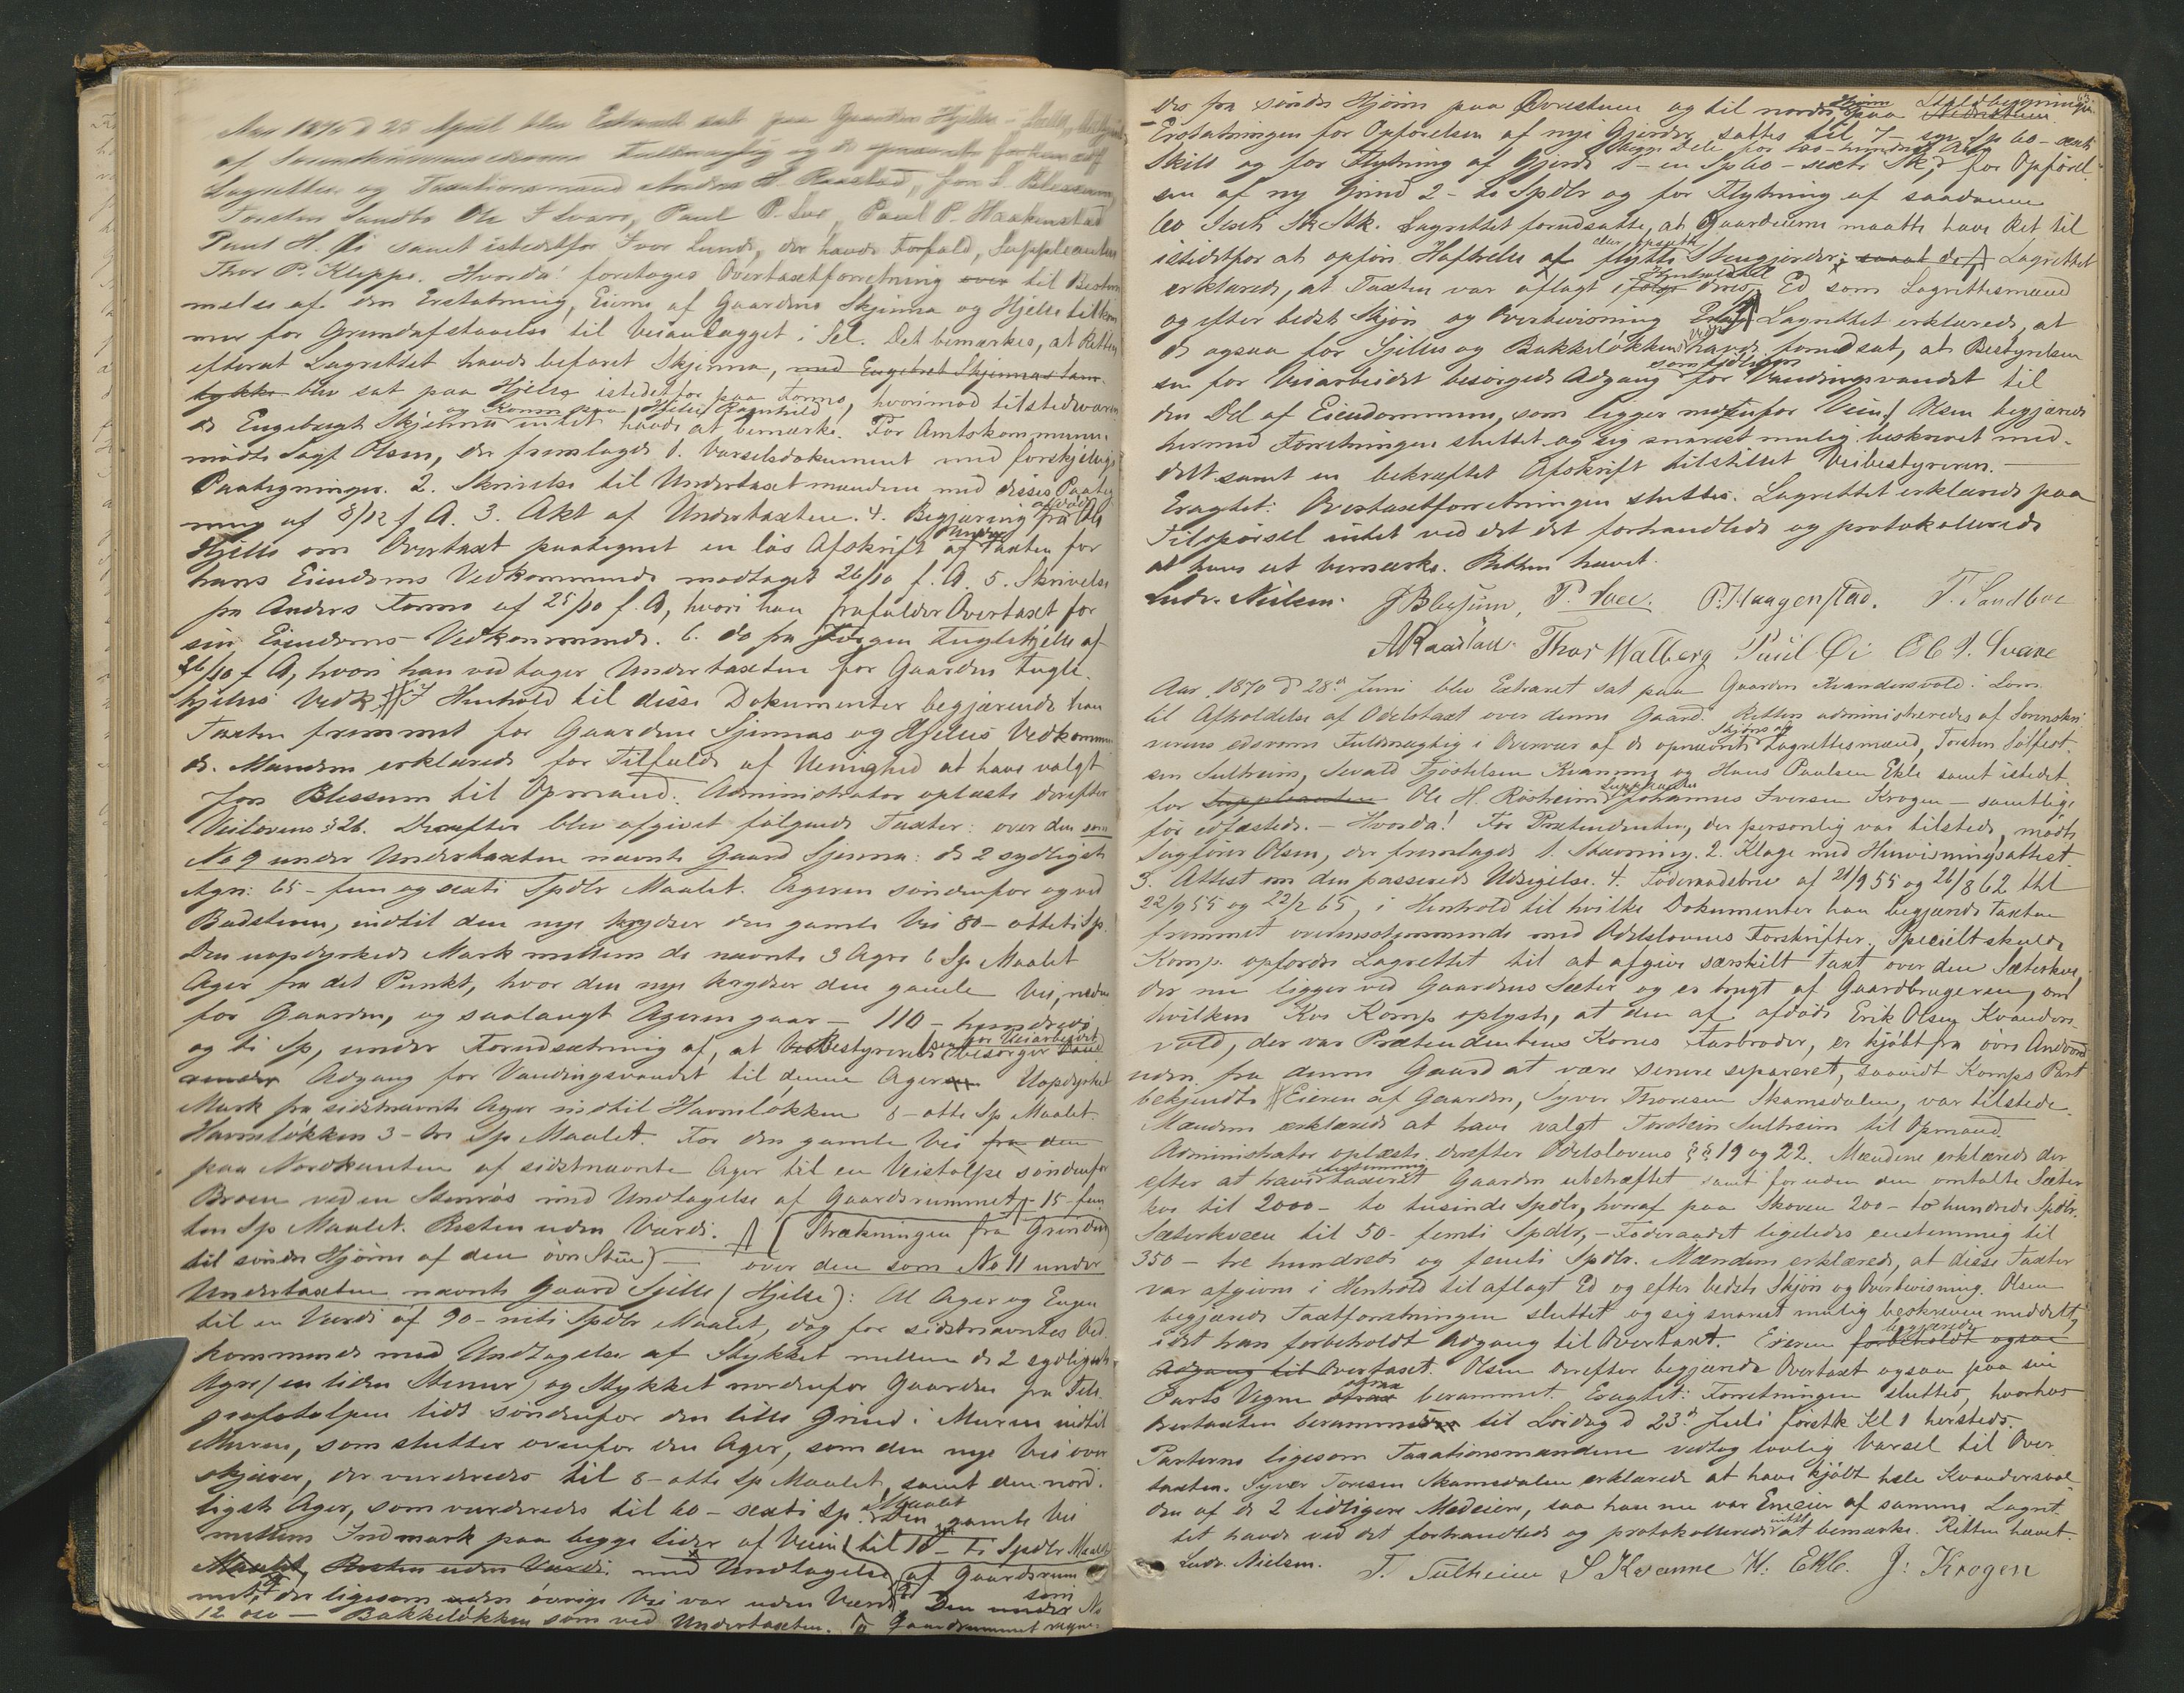 Aar 1870 d 25 April blev Extraret sat paa Gaarden Hjelle
af Sorenskriverens edsvorne Fuldmægtig og de opnævnte
Lagrettes og Taxationsmænd Anders R. Raastad, Jon I. Blessum,
Torsten Sandbo Ole I Svare, Paul P. Sve, Paul P. Haakenstad
Paul H. Øi samt istedetfor Iver Lunde, der havde Forfald, Suppleanten
Thor P. Kleppe. Hvorda! foretoges Overtaxtforretning over til Bestem
melse af den Erstatning, Eierne af Gaardene Skjenna og Hjelle tilkom
mer for Grundafstaaelse til Veianlægget i Sel. Det bemærkes, at Retten
efterat Lagrettet havde befaret Skjenna, med Engebret Skjennas Sam
tykke blev sat paa Hjelle istedetfor paa Formo, hvorimod tilstedeværen
de Engebregt Skjenna og Konen paa Hjelle Ragnhild intet havde at bemærke. For Amtskommunen
mødte Sagf Olsen, der fremlagde 1. Varselsdokument med forskjellige
Paategninger. 2. Skrivelse til Undertaxtmændene med disses Paateg
ning af 8/12 f A. 3. Akt af Undertaxten. 4. Begjæring fra Ole
Hjelle om Overtaxt paategnet en løs Afskrift af Under Taxten for
hans Eiendoms Vedkommende modtaget 26/10 f. A. 5. Skrivelse
fra Anders Formo af 25/10 f. A, hvori han frafalder Overtaxt for
sin Eiendoms Vedkommende. 6. do fra Jørgen Fuglehjelle af
26/10 f A, hvori han vedtager Undertaxten for Gaarden Fugle
hjelles Vedk. I Henhold til disse Dokumenter begjærende han
Taxten fremmet for Gaardene Sjennas og Hjelles Vedkommen
de. Mændene erklærede for Tilfælde af Uenighed at have valgt
Jon Blessum til Opmand. Administrator oplæste derefter
Veilovens § 26. Derefter blev afgivet følgende Taxter: over den som
No 9 under Undertaxten nævnte Gaard Sjenna: de 2 sydligste
Agre: 65 - fem og sexti Spdlr Maalet. Ageren søndenfor og ved
Badstuen, indtil den nye krydser den gamle Vei 80 - otteti Sp.
Den uopdyrkede Mark mellem de nævnte 3 Agre 6 Sp Maalet
Ager fra det Punkt, hvor den nye krydser den gamle Vei, neden
for Gaarden, og saalangt Ageren gaar - 110 - hundrede
og ti Sp, under Forudsætning af, at Bestyrelsen for Veiarbeidet besørger
Adgang for Vandingsvandet til denne Ager Uopdyrket
Mark fra sidstnævnte Ager indtil Havneløkken 8 - otte Sp Maalet.
Havneløkken 3 - tre Sp Maalet. For den gamle Vei fra den
paa Nordkanten af sidstnævnte Ager til en Veistolpe søndenfor
Broen ved en Stenrøs med Undtagelse af Gaardsrummet 15 - fem
ten Sp Maalet. Resten uden Værdi. (Strækningen fra Grinden
til søndre Hjørne af den øvre Stue) — over den som No 11 under
Undertaxten nævnte Gaard Sjelle (Hjelle): Al Ager og Engen
til en Værdi af 90 - niti Spdlr Maalet, dog for sidstnævntes Ved
kommende med Undtagelse af Stykket mellem de 2 sydligste
Agre (en liden Stenur) og Stykket nordenfor Gaarden fra Tele
grafstolpen lidt søndenfor den lille Grind i Muren indtil
Muren, som slutter ovenfor den Ager, som den nye Vei over
skjærer, der vurderedes til 8 - otte Sp Maalet, samt den nord
ligste Ager, som vurderedes til 60 - sexti Sp. Maalet Den gamle Vei
mellem Indmark paa begge sider af Veien til 10 - ti Spdlr Maalet
Maalet, Resten uden Værdi. med Undtagelse af Gaardsrum
met, der ligesom den øvrige Vei var uden Værdi. Den under som No
12 — Bakkeløkken som ved Undertaxten. Gaardsrummet regne-
63.
des fra søndre Hjørne paa Øvrestuen og til nordre Hjørne paa Nedrestuen Staldbygningen
Erstatningen for Opførelsen af nye Gjerder sattes til 7 - syv Sp 60 - sexti
Skill og for Flytning af Gjerde 1 - en Sp 60 - sexti Sk, begge Dele for 100 - hundrede Alen for Opførel
sen af ny Grind 2 - to Spdlr og for Flytning af saadanne
60 Sexti Sk Stk. Lagrettet forudsatte, at Gaardeierne maatte have Ret til
istedetfor at opføre Haftelse af flytte eller opsætte Stengjerder, samt det Lagrettet
erklærede, at Taxten var aflagt i Henhold til deres Ed som Lagrettesmænd
og efter bedste Skjøn og Overbevisning Lagrettet erklærede, at
de ogsaa for Sjelles og Bakkeløkkens Vedk. havde forudsat, at Bestyrelsen
sen for Veiarbeidet besørgede Adgang som tidligere for Vandingsvandet til
den Del af Eiendommen, som ligger nedenfor Veien. Olsen begjærede
hermed Forretningen sluttet og sig snarest mulig beskrevet med-
delt samt en bekræftet Afskrift tilstillet Veibestyreren. —
Eragtet: Overtaxtforretningen sluttes. Lagrettet erklærede paa
Tilspørsel intet ved det det forhandlede og protokollerede
at have at bemærke. Retten hævet.
Ludv. Nielsen. J Blessum, P. Svee. P. Haagenstad. T. Sandboe
A Raastad. Thor Walberg Paul Øi Ole I. Svare
Aar 1870 d 28de Juni blev Extraret sat paa Gaarden Kvandersvold i Lom
til Afholdelse af Odelstaxt over denne Gaard. Retten administreredes af Sorenskri
verens edsvorne Fuldmægtig i Overvær af de opnævnte Skjøns og Lagrettesmænd, Torsten Sølfest
sen Sulheim, Sevald Fjøstelsen Kvamme og Hans Paulsen Ekle samt istedet
for Suppleanten Ole H. Røsheim Suppleanten Johannes Iversen Krogen - samtlige
før edfæstede. - Hvorda! For Prætendenten, der personlig var tilstede, mødte
Sagfører Olsen, der fremlagde 1. Stævning. 2. Klage med Henvisningsattest
3. Attest om den passerede Udsigelse. 4. Føderaadsbrev af 21/9 55 og 26/8 62 thl
22/9 55 og 22/2 65, i Henhold til hvilke Dokumenter han begjærede Taxten
fremmet overensstemmende med Odelslovens Forskrifter. Specielt skulde
Komp. opfordre Lagrettet til at afgive særskilt Taxt over den Sæterkve
der nu ligger ved Gaardens Sæter og er brugt af Gaardbrugeren, om
hvilken Kve Komp oplyste, at den af afdøde Erik Olsen Kvanders
vold, der var Prætendentens Kones Farbroder, er kjøbt fra øvre Andvord
uden fra denne Gaard at være senere separeret, saavidt Komps Part
bekjendt. Eieren af Gaarden, Syver Thoresen Skamsdalen, var tilstede.
Mændene erklærede at have valgt Torstein Sulheim til Opmand.
Administrator oplæste derefter Odelslovens §§ 19 og 22. Mændene erklærede der
efter at have enstemmig taxeret Gaarden ubehæftet samt foruden den omtalte Sæter
kve til 2000 - to tusinde Spdlr, hvoraf paa Skoven 200 - to hundrede Spdlr.
Sæterkveen til 50 - femti Spdlr, - Føderaadet ligeledes enstemmig til
350 - tre hundrede og femti Spdlr. Mændene erklærede, at disse Taxter
var afgivne i Henhold til aflagt Ed og efter bedste Skjøn og Overbevisning. Olsen
begjærede Taxtforretningen sluttet og sig snarest mulig beskreven meddelt,
idet han forbeholdt Adgang til Overtaxt. Eieren forbeholdt ogsaa begjærede
Adgang til Overtaxt. Olsen derefter begjærede Overtaxt ogsaa paa sin
Parts Vegne strax berammet. Eragtet: Forretningen sluttes, hvorhos
Overtaxten berammes til Lørdag d 23de Juli førstk Kl 1 hersteds.
Parterne ligesom Taxationsmændene vedtog lovlig Varsel til Over
taxten. Syver Toresen Skamsdalen erklærede at have kjøbt hele Kvandersvol
den af de 2 tidligere Medeiere, saa han nu var Eneeier af samme. Lagret
tet havde ved det forhandlede og protokollerede intet at bemærke. Retten hævet.
Ludv. Nielsen. T. Sulheim S Kvamme H: Ekle. J: Krogen